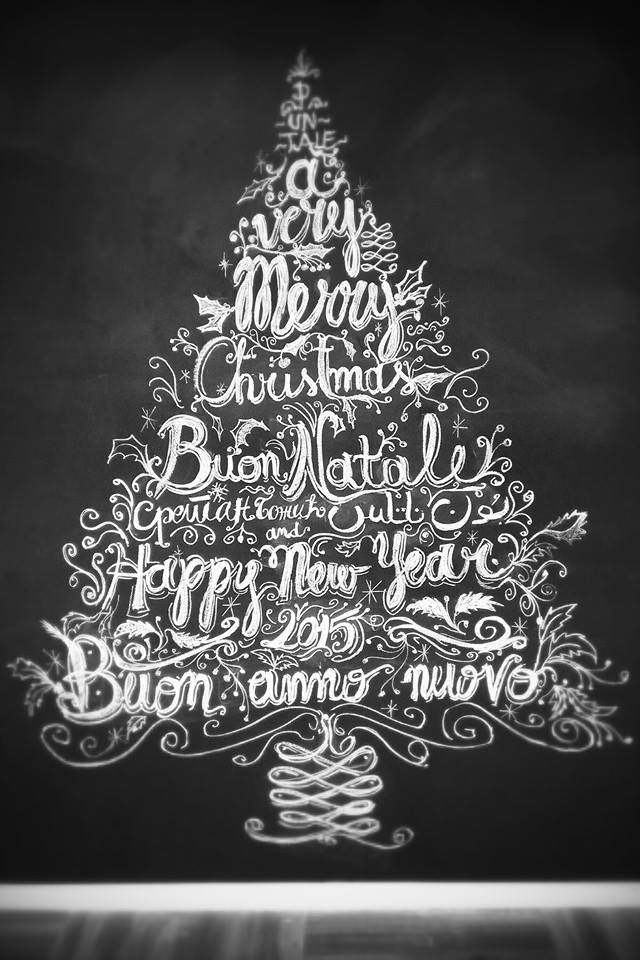 P
UN-
TALE
a
very
Merry
Christmas
Buon Natale
Сретан Божић
and
Happy New Year
2015
Buon anno nuovo